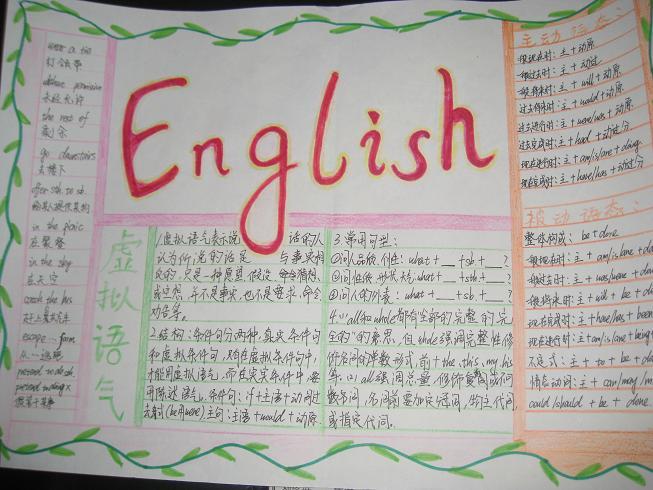 English
wear a tie
打领带
without permission
未经允许
the rest of
剩余
go downstairs
去楼下
offer sth. to sb.
给某人提供某物
in the picnic
在野餐
in the sky
在天空
catch the bus
赶上公共汽车
escape from
从…逃跑
pretend to do sth.
pretend doing x
假装干某事
虚拟语气
1.虚拟语气表示说 话的人
认为所说的话是 与事实相
反的,只是一种愿望,假设,
或空想,并不是事实,也不是要求,命令
劝告等。
2.结构:条件句分两种,真实条件句
和虚拟条件句,只有在虚拟条件句中,
才能用虚拟语气,而在真实条件中,要
用陈述语气。条件句:if+主语+动词过
去式(be用were)主句:主语+would+动原
3.常用句型:
①问人品质,个性:what+__+sb+__?
②问性质,形状,天气what+__+sth+__?
③问人的外表:what+__+sb+__?
4.all和whole都有全部的完整的完
全的"的意思,但whole强调完整性修
饰名词的单数形式,前+the,this,my,his
等.all强调总量,修饰复数或不可
数名词,名词前要加定冠词,物主代词,
或指定代词。
主动语态:
一般现在时:主+动原
一般过去时:主+动过
一般将来时:主+will+动原
过去将来时:主+would+动原
过去进行时:主+was/were+动原
过去完成时:主+had+动过分
现在进行时:主+am/is/are+doing
现在完成时:主+have/has+动过分
被动语态:
整体构成:be+done
一般现在时:主+am/is/are+done
一般过去时:主+was/were+done
一般将来时:主+will+be+do
现在完成时:主+have/has+been
现在进行时:主+am/is/are+being
不定式:主+to+be+do
情态动词:主+can/may/m
could/should+be+done